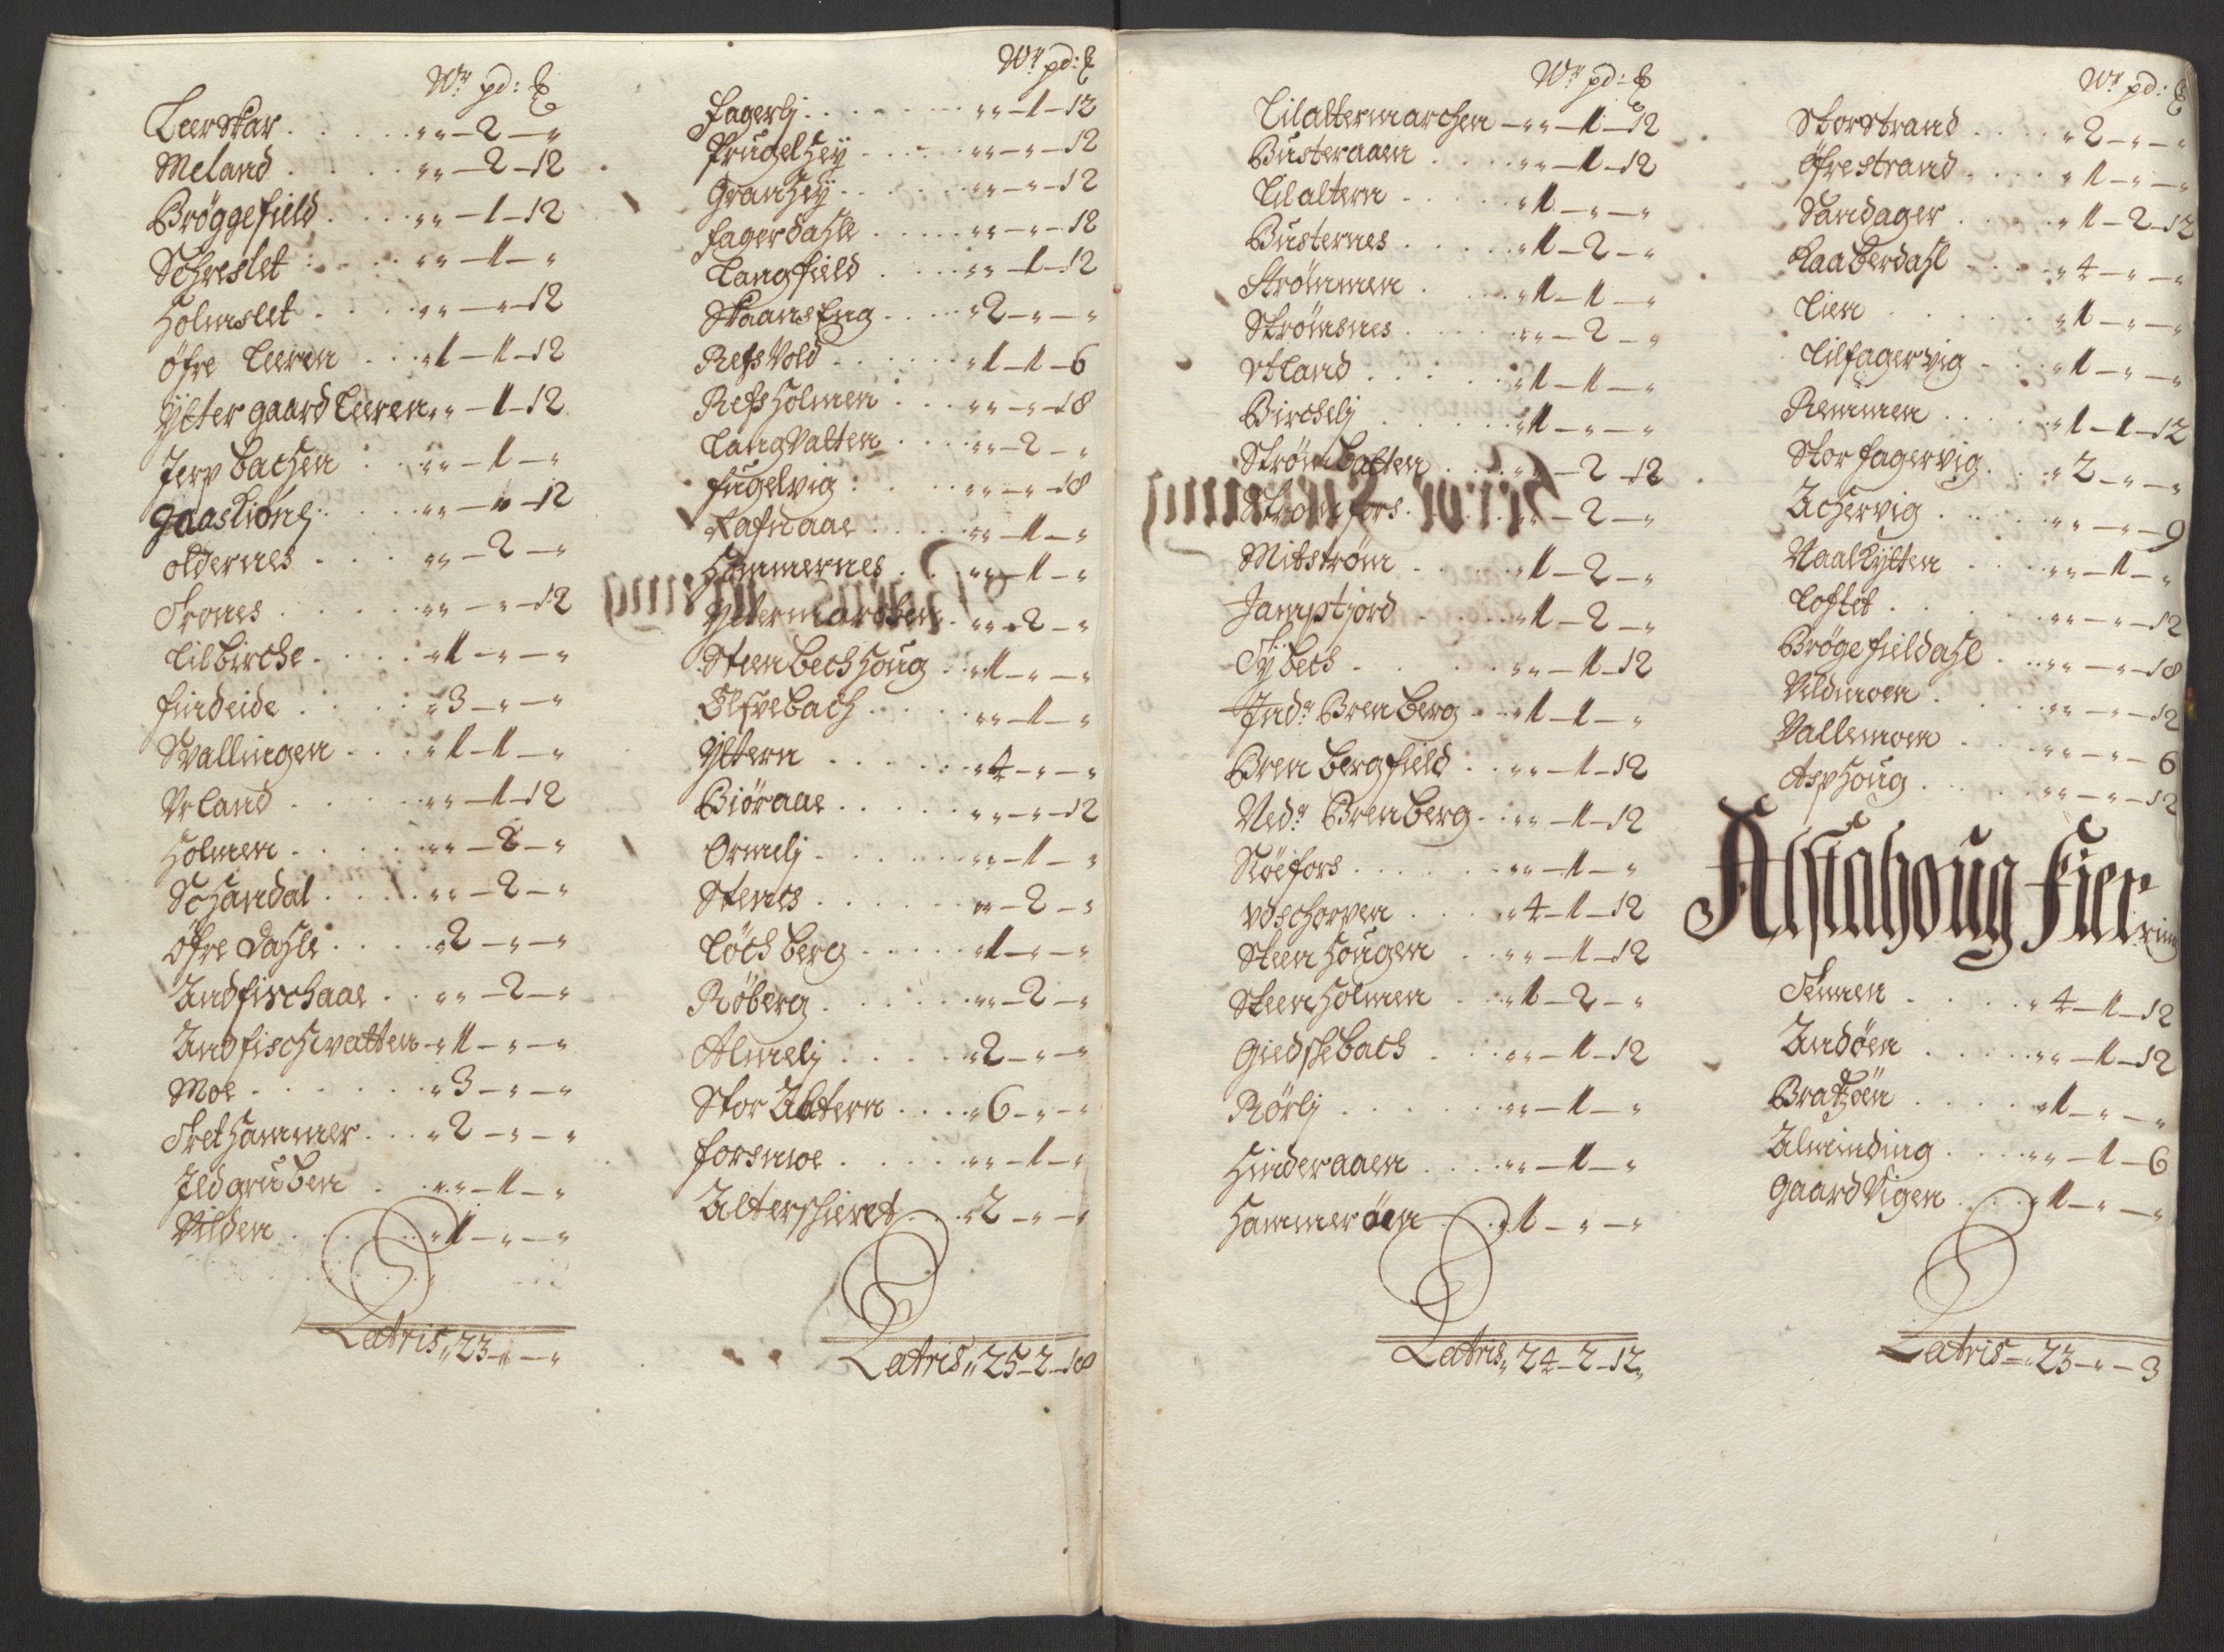 Wr pd: ℔
Leerskar . . . . „ „ – 2 – „
Meland . . . . „ „ – 2 – 12
Brøggefield . . . . „ „ – 1 – 12
Schreslet . . . . „ „ – 1 – „
Holmslet . . . . „ „ – „ – 12
Øfre Leeren . . . „ 1 – 1 – 12
Ytter gaard Leeren „ „ – 1 – 12
Jerpbachen . . „ „ – 1 – „
Gaaslionlj . . . „ „ – „ – 12
Oldernes . . . . „ „ – 2 – „
Trones . . . . . „ „ – „ – 12
Lilbirche . . . . „ 1 – „ – „
Findeide . . . . „ 3 – „ – „
Svallingen . . . „ 1 – 1 – „
Vrland . . . . . „ „ – 1 – 12
Holmen . . . . . „ „ – 2 – „
Schandal . . . . „ „ – 2 – „
Øfre Dahle . . . . „ 2 – „ – „
Andfischaae . . „ „ – 2 – „
Andfischvatten – „ 1 – „ – „
Moe . . . . . . „ 3 – „ – „
Trethammer . . . „ 2 – „ – „
Ildgruben . . „ „ – 1 – „
Vilden . . . . . „ 1 – „ – „
Latris „ 23 – 1 – „
Wr pd: ℔
Fagerlj . . . . . . „ „ – 1 – 12
Prugelhey . . . . . „ „ – „ – 12
Granhey . . . . . „ „ – „ – 12
Fagerdahle . . . . . „ „ – „ – 12
Langfield . . . . „ „ – 1 – 12
Skaanseng . . . . „ 2 – „ – „
Refsvold . . . . . „ 1 – 1 – 6
Refsholmen . . . . „ „ – „ – 18
Langvatten . . . . „ „ – 2 – „
Fugelvig . . . . „ „ – „ – 18
Rafnaae . . . . . „ „ – 1 – „
Hammernes . . . „ „ – 1 – „
Yttermarchen . „ „ – 2 – „
Steenbechhoug . „ 1 – „ – „
Elfvebach . . . . „ „ – 1 – „
Yttern . . . . . . „ 4 – „ – „
Biøraae . . . . . „ „ – „ – 12
Ormelj . . . . . . „ „ – 1 – „
Stenes . . . . . . „ „ – 2 – „
Løchberg . . . . . „ 1 – „ – „
Røberg . . . . . . „ „ – 2 – „
Almelj . . . . . „ 2 – „ – „
Stor Altern . . . . „ 6 – „ – „
Forsmoe . . . . . „ „ – 1 – „
Alterschieret . . „ 2 – „ – „
Latris „ 25 – 2 – 18
Wr pd: ℔
Lilaltermarchen – „ „ – 1 – 12
Busteraaen . . . . „ „ – 1 – 12
Lilaltern . . . . . „ 1 – „ – „
Busternes . . . . . „ 1 – 2 – „
Strømmen . . . . „ 1 – 1 – „
Strømsnes . . . . . „ „ – 2 – „
Vtland . . . . . „ 1 – 1 – „
Birchelj . . . . . „ 1 – „ – „
Strømbatten . . . „ „ – 2 – 12
Strømfors . . . . „ „ – 2 – „
Mitstrøm . . . . „ 1 – 2 – „
Jamptjord . . . . „ 1 – 2 – „
Tybech . . . . . „ „ – 1 – 12
Indr Brenberg . . „ 1 – 1 – „
Brenbergfield . . „ „ – 1 – 12
Nedr Brenberg . . „ „ – 1 – 12
Støifors . . . . . „ „ – 1 – „
Vdschorpen . . . „ 4 – 1 – 12
Steenhougen . . „ „ – 1 – 12
Steenholmen . . „ 1 – 2 – „
Giedschebach . . „ „ – 1 – 12
Rørlj . . . . . . „ „ – 1 – „
Hinderaaen . . . . „ „ – 1 – „
Hammerøen . . . „ 1 – „ – „
Latris „ 24 – 2 – 12 „
Wr pd: ℔
Storstrand . . . . „ 2 – „ – „
Øfrestrand . . . . „ 1 – „ – „
Sandager . . . . „ 1 – 2 – 12
Raaberdahl . . . . „ 4 – „ – „
Lien . . . . . . „ 1 – „ – „
Lilfagervig . . . „ 1 – „ – „
Remmen . . . . . „ 1 – 1 – 12
Storfagervig . . . „ 2 – „ – „
Achervig . . . . „ „ – „ – 9
Naalkytten . . . . „ „ – 1 – „
Loftet . . . . . . „ „ – „ – 12
Brøgefieldahl . . „ „ – „ – 18
Vildmoen . . . . „ „ – „ – 12
Vallemoen . . . . „ „ – „ – 6
Asphoug . . . . . „ „ – „ – 12
Alstahoug Fierring
Temen . . . . . „ 4 – 1 – 12
Andøen . . . . . „ „ – 1 – 12
Bratzøen . . . . . „ 1 – „ – „
Alminding . . . . „ „ – 1 – 6
Gaardvigen . . . „ 1 – „ – „
Latris – „ 23 – „ – 3